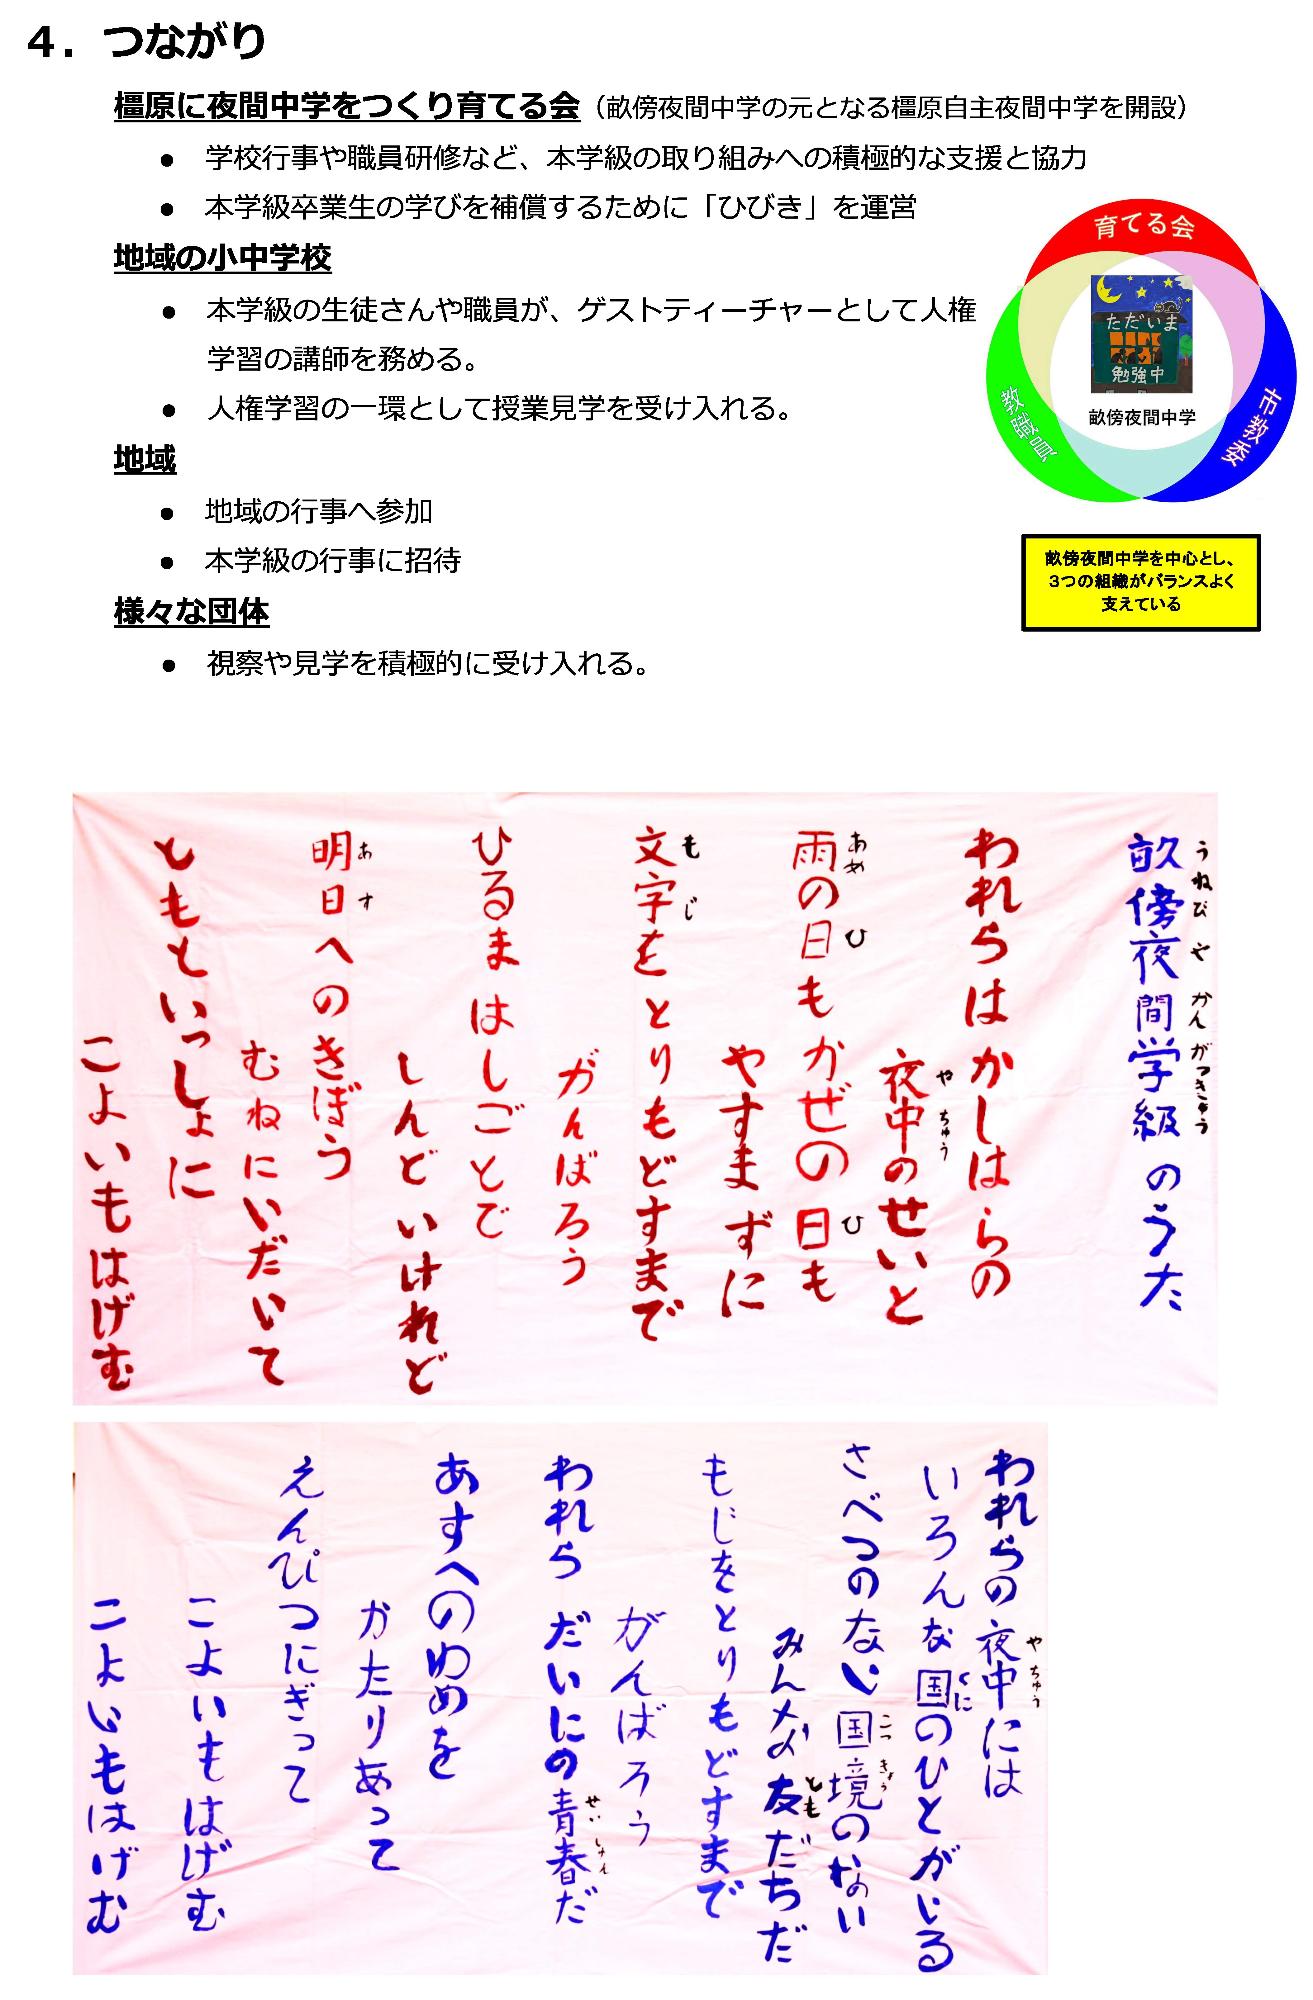 ４．つながり
橿原に夜間中学をつくり育てる会（畝傍夜間中学の元となる橿原自主夜間中学を開設）
● 学校行事や職員研修など、本学級の取り組みへの積極的な支援と協力
● 本学級卒業生の学びを補償するために「ひびき」を運営
地域の小中学校
● 本学級の生徒さんや職員が、ゲストティーチャーとして人権
学習の講師を務める。
● 人権学習の一環として授業見学を受け入れる。
地域
● 地域の行事へ参加
● 本学級の行事に招待
様々な団体
● 視察や見学を積極的に受け入れる。
育てる会
教職員
市教委
ただいま
勉強中
畝傍夜間中学
畝傍夜間中学を中心とし、
３つの組織がバランスよく
支えている
畝傍夜間学級のうた
うねび や かん がっきゅう
われらはかしはらの
夜中のせいと
や ちゅう
雨の日もかぜの日も
あめ ひ ひ
やすまずに
文字をとりもどすまで
も じ
がんばろう
ひるまはしごとで
しんどいけれど
明日へのきぼう
あ す
むねにいだいて
ともといっしょに
こよいもはげむ
われらの夜中には
や ちゅう
いろんな国のひとがいる
くに
さべつのない国境のない
こっ きょう
みんな友だちだ
とも
もじをとりもどすまで
がんばろう
われらだいにの青春だ
せい しゅん
あすへのゆめを
かたりあって
えんぴつにぎって
こよいもはげむ
こよいもはげむ